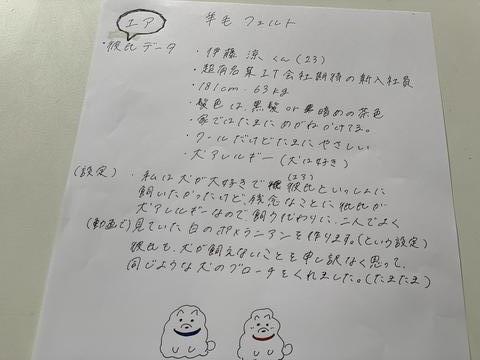 エア 羊毛フェルト
・彼氏データ ・伊藤 涼くん(23)
・超有名某IT会社期待の新入社員
・181cm・63kg
・髪色は黒髪or暗めの茶色
・家ではたまにめがねかけてる。
・クールだけどたまにやさしい
・犬アレルギー(犬は好き)
(設定) ・私は犬が大好きで彼氏といっしょに
(23)
飼いたかったけど、残念なことに彼氏が
犬アレルギーなので飼う代わりに、二人でよく
(動画で)見ていた白のポメラニアンを作ります。(という設定)
彼氏も、犬が飼えないことを申し訳なく思って、
同じような犬のブローチをくれました。(たまたま)